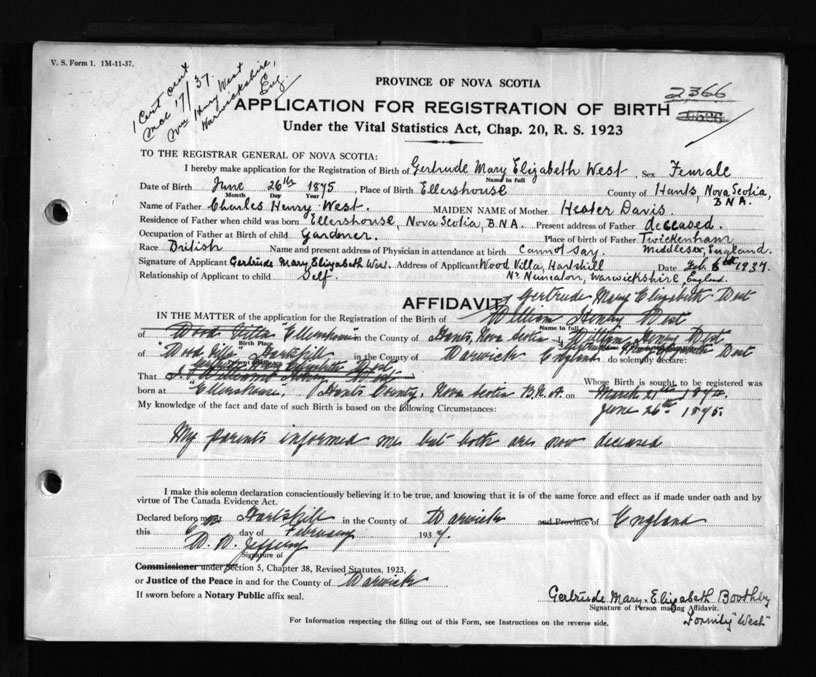 V. S. Form 1. 1M-11-37.
1 Cert sent
Mch 17/37.
Mrs Henry West
Warwickshire,
Eng.
PROVINCE OF NOVA SCOTIA
2366
APPLICATION FOR REGISTRATION OF BIRTH
Under the Vital Statistics Act, Chap. 20, R. S. 1923
TO THE REGISTRAR GENERAL OF NOVA SCOTIA:
I hereby make application for the Registration of Birth of Gertrude Mary Elizabeth West, Sex Female
Name in full
Date of Birth June 26th 1895, Place of Birth Ellershouse County of Hants, Nova Scotia,
Month Day Year
B.N.A.
Name of Father Charles Henry West. MAIDEN NAME of Mother Hester Davis.
Residence of Father when child was born Ellershouse, Nova Scotia, B.N.A. Present address of Father deceased.
Occupation of Father at Birth of child Gardener. Place of birth of Father Twickenham
Middlesex, England.
Race British Name and present address of Physician in attendance at birth Cannot say.
Signature of Applicant Gertrude Mary Elizabeth West. Address of Applicant Wood Villa, Hartshill Date Feb. 6th 1937.
Relationship of Applicant to child Self. Nr. Nuneaton, Warwickshire, England.
AFFIDAVIT Gertrude Mary Elizabeth West
IN THE MATTER of the application for the Registration of the Birth of William Henry West
Name in full
of Wood Villa "Ellershouse" in the County of Hants, Nova Scotia William Henry West
Birth Place
of "Wood Villa" Hartshill in the County of Warwick England West do solemnly declare:
That Whose Birth is sought to be registered was
born at "Ellershouse", Hants County, Nova Scotia B.N.A. on March 21st
June 26th 1895.
My knowledge of the fact and date of such Birth is based on the following Circumstances:
My parents informed me but both are now deceased
I make this solemn declaration conscientiously believing it to be true, and knowing that it is of the same force and effect as if made under oath and by
virtue of The Canada Evidence Act.
Declared before me at Hartshill in the County of Warwick and Province of England
this 6th day of February 1937.
W. D. Jeffery
Signature of
Commissioner under Section 5, Chapter 38, Revised Statutes, 1923,
or Justice of the Peace in and for the County of Warwick
If sworn before a Notary Public affix seal.
Gertrude Mary Elizabeth Boothby
Signature of Person making Affidavit.
Formily "West"
For Information respecting the filling out of this Form, see Instructions on the reverse side.